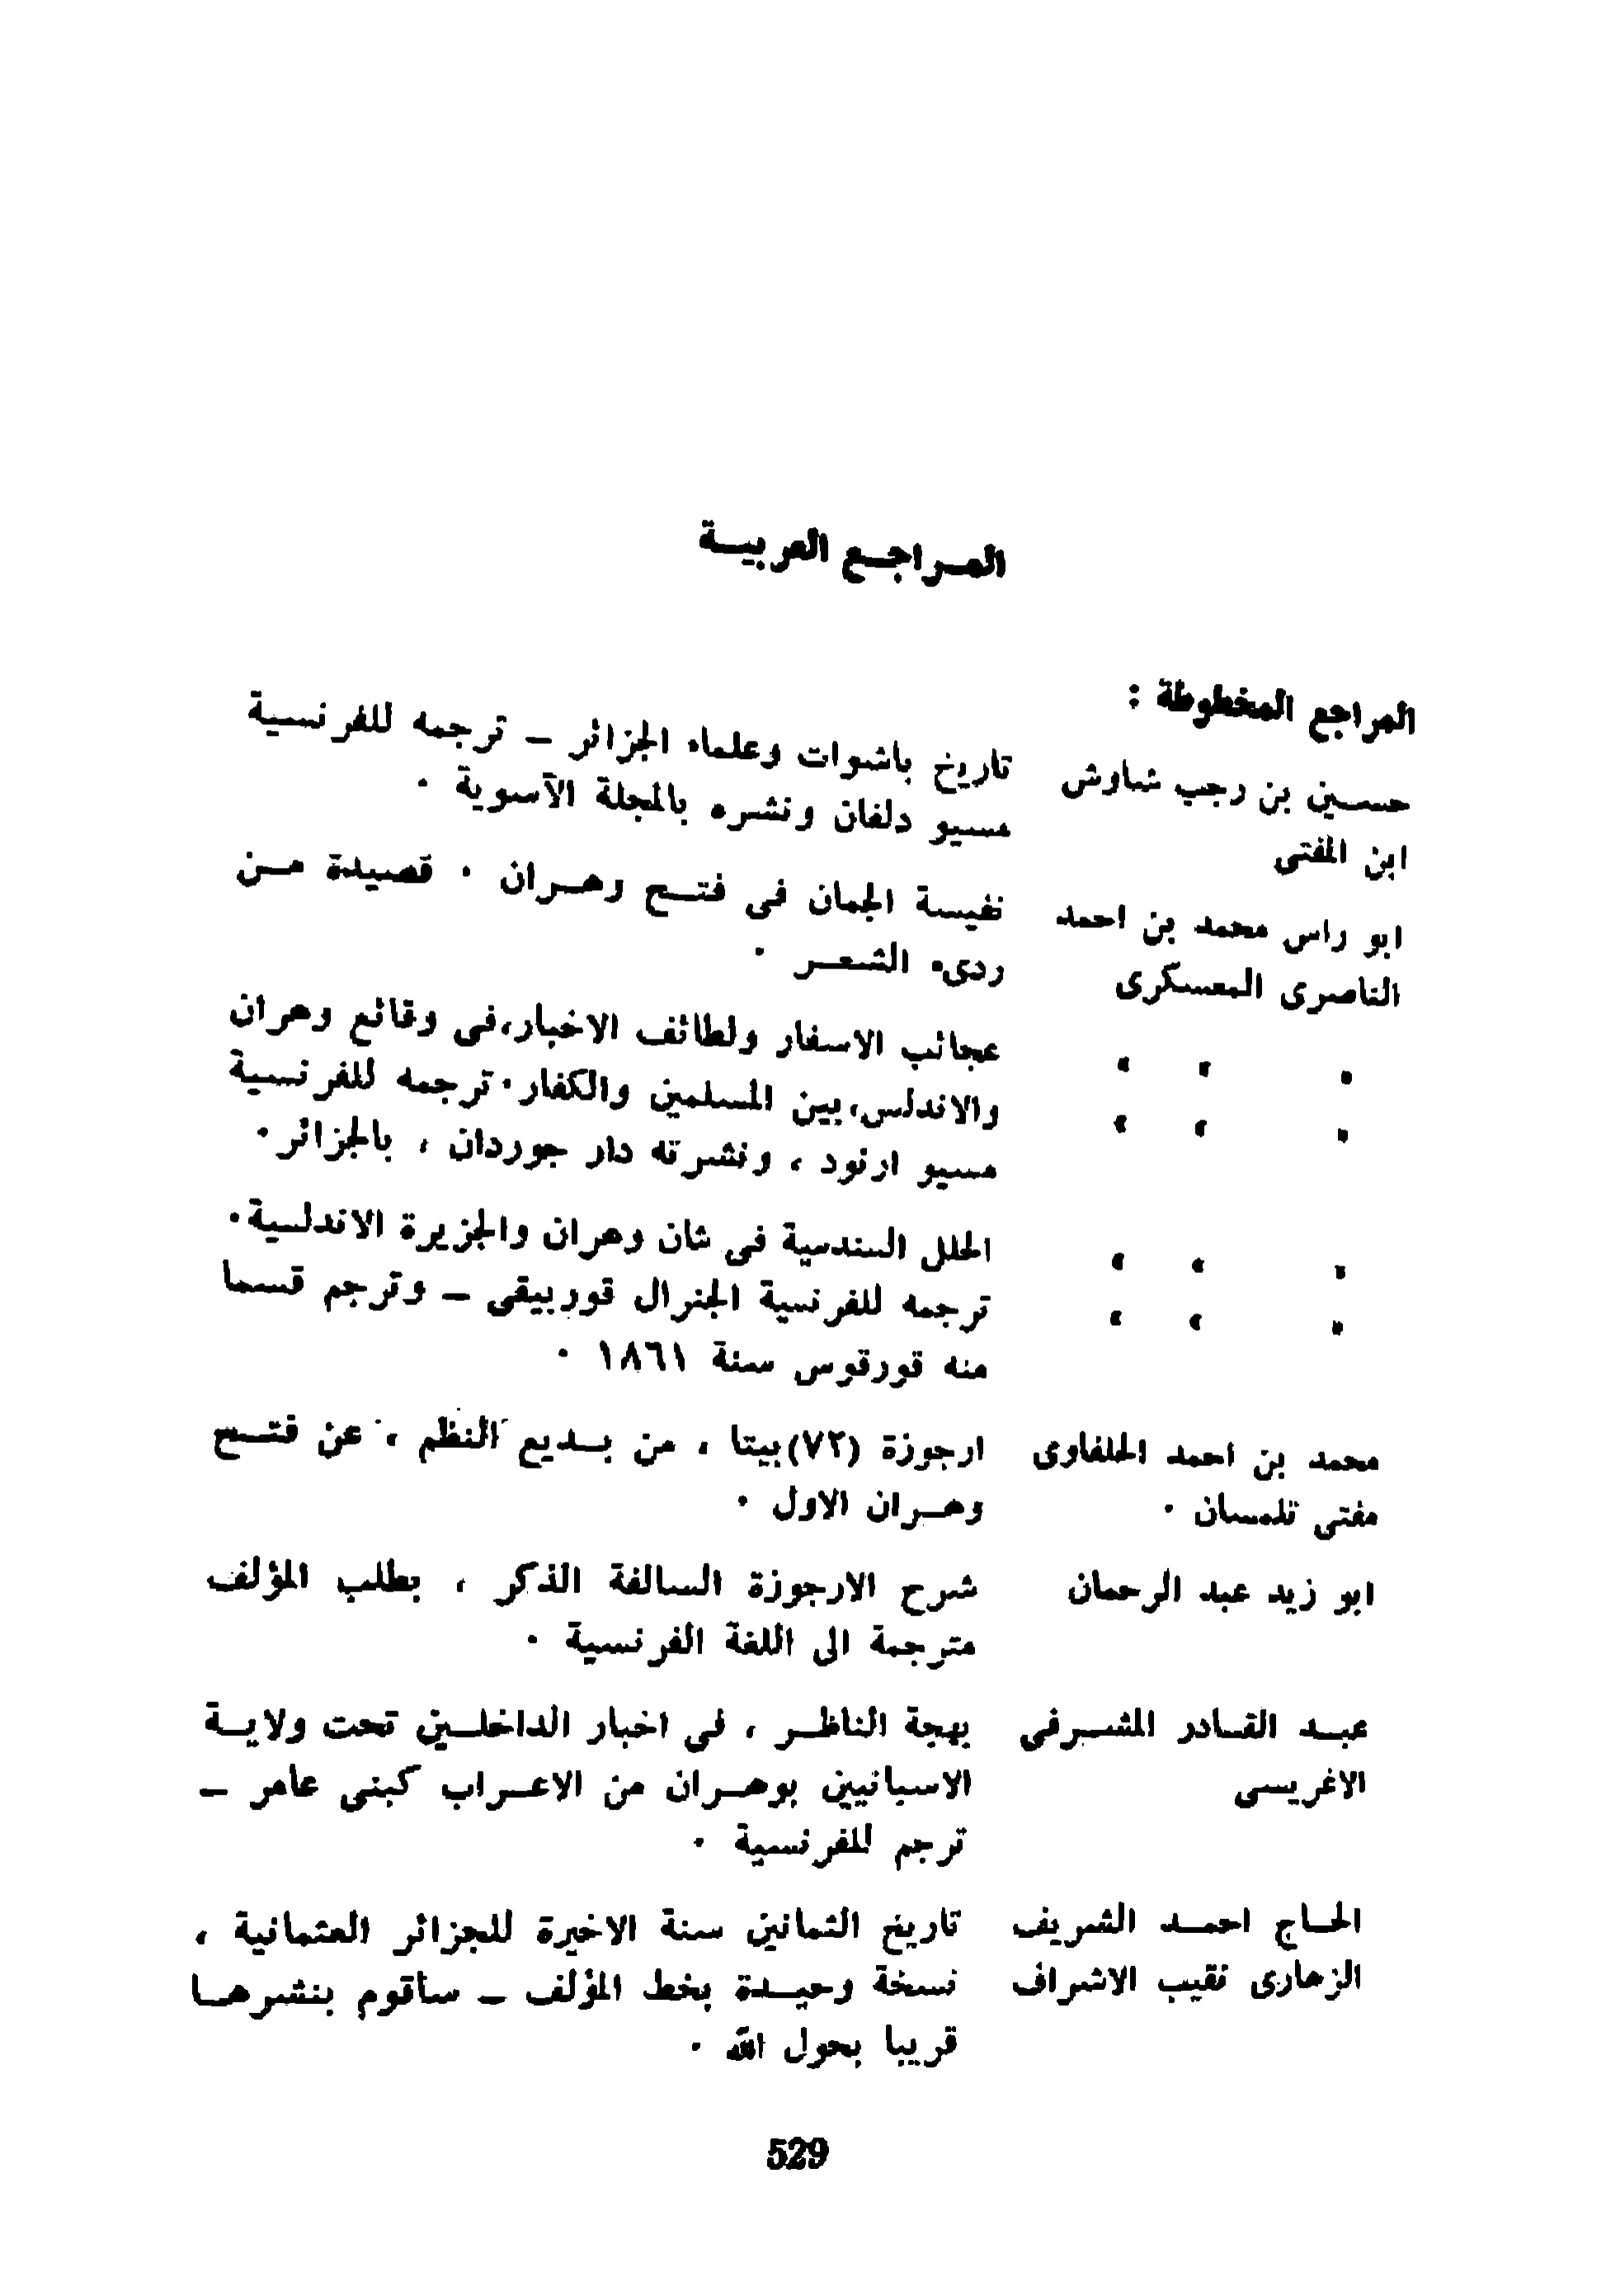 المراجع العربية
المراجع المخطوطة :
حسين بن رجب شاوش
ابن المفتى
تاريخ باشوات وعلماء الجزائر – ترجمه للفرنسية
مسيو دلفان ونشره بالمجلة الآسوية .
ابو راس محمد بن احمد
الناصرى المعسكرى
نفيسة الجمان فى فتح وهران . قصيدة من
ردىء الشعر .
» » »
» » »
عجائب الاسفار ولطائف الاخبار،فى وقائع وهران
والاندلس،بين المسلمين والكفار.ترجمه للفرنسية
مسيو ارنود ، ونشرته دار جوردان ، بالجزائر.
» » »
» » »
الحلل السندسية فى شان وهران والجزيرة الاندلسية.
ترجمه للفرنسية الجنرال قوربيقى – وترجم قسما
منه قورقوس سنة ١٨٦١ .
محمد بن احمد الحلفاوى
مفتى تلمسان .
ارجوزة (٧٢)بيتا ، من بديع النظم ، عن فتح
وهران الاول .
ابو زيد عبد الرحمان
شرح الارجوزة السالفة الذكر ، بطلب المؤلف
مترجمة الى اللغة الفرنسية .
عبد القادر المشرفى
الاغريسى
بهجة الناظر ، فى اخبار الداخلين تحت ولاية
الاسبانيين بوهران من الاعراب كبنى عامر –
ترجم للفرنسية .
الحاج احمد الشريف
الزهارى نقيب الاشراف
تاريخ الثمانين سنة الاخيرة للجزائر العثمانية ،
نسخة وحيدة بخط المؤلف – سأقوم بنشرها
قريبا بحول الله .
529